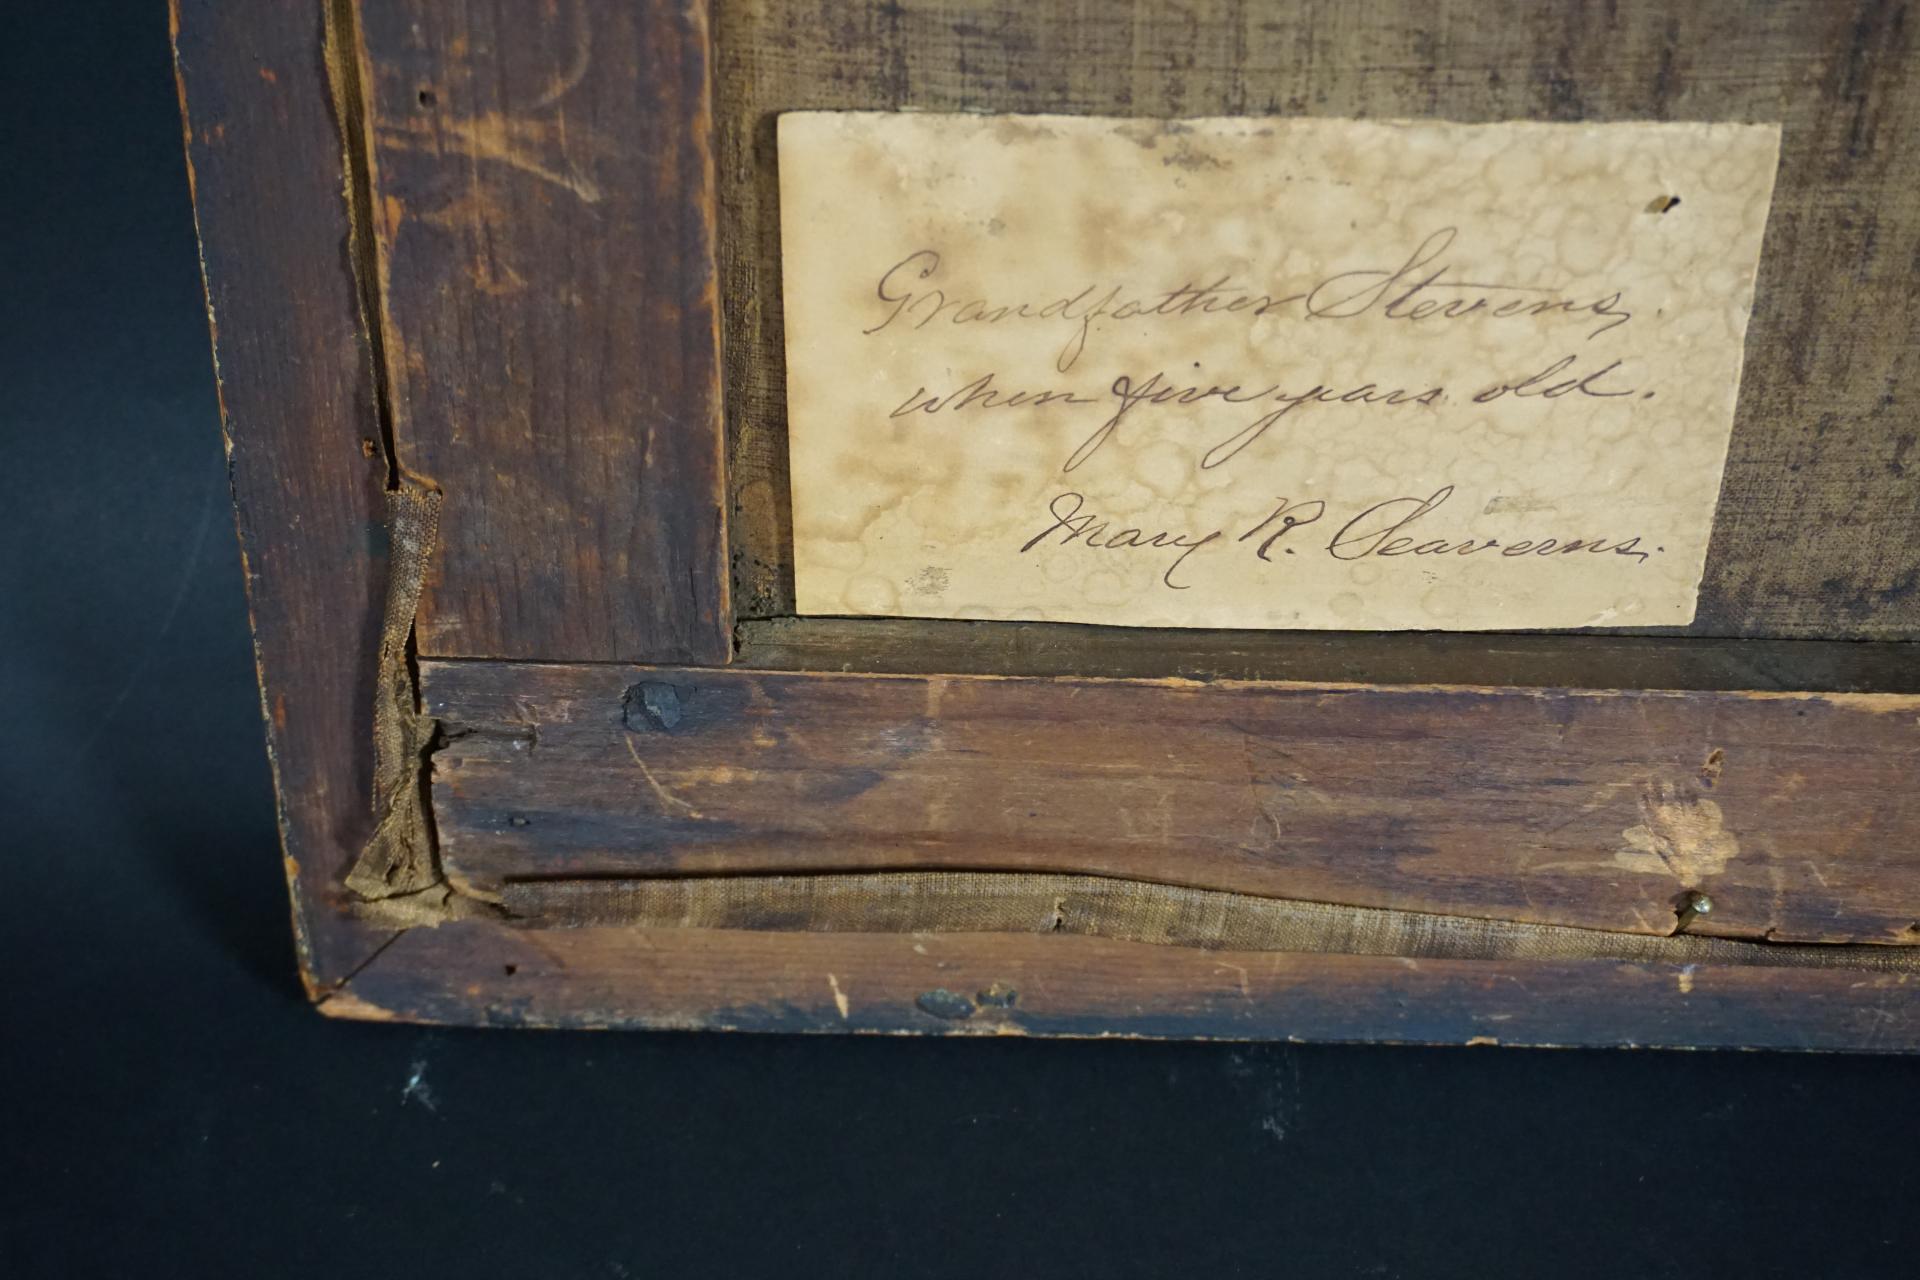 Grandfather Stevens,
when five years old.
Mary R. Seaverns.